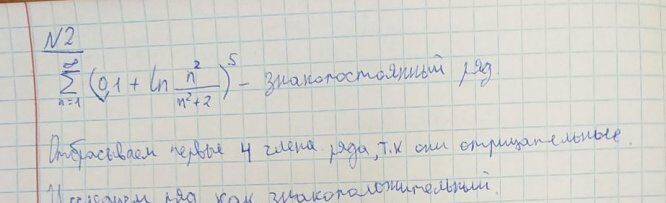 N2
∞
∑ (0,1 + ln n²/(n²+2))⁵ – знакопостоянный ряд
n=1
Отбрасываем первые 4 члена ряда, т.к они отрицательные.
ряд как знакоположительный.